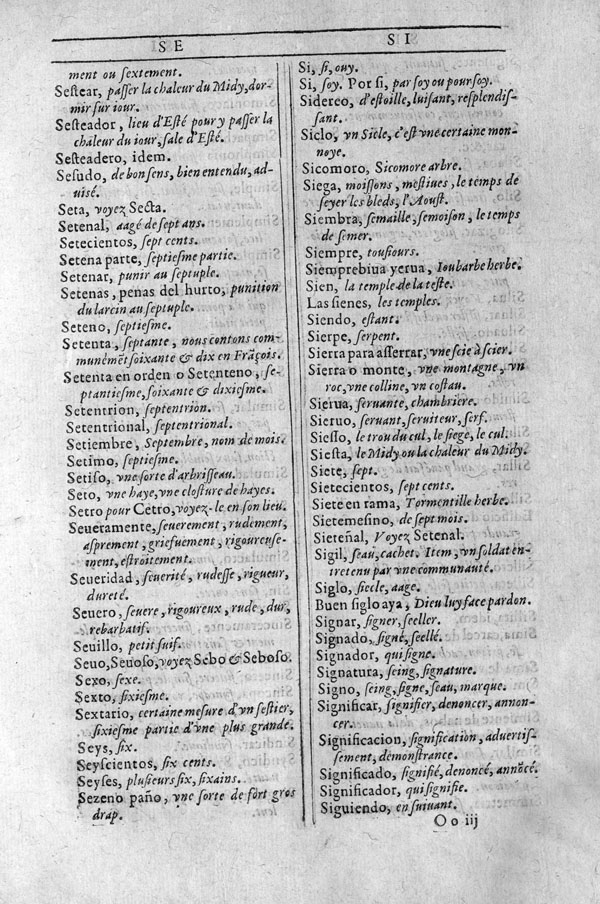 SE
ment ou ſextement.
Seſtear, paſſer la chaleur du Midy, dor-
mir ſur iour.
Seſteador, lieu d'Eſté pour y paſſer la
chaleur du iour, ſale d'Eſté.
Seſteadero, idem.
Seſudo, de bon ſens, bien entendu, ad-
uisé.
Seta, voyez Secta.
Setenal, aagé de ſept ans.
Setecientos, ſept cents.
Setena parte, ſeptieſme partie.
Setenar, punir au ſeptuple.
Setenas, penas del hurto, punition
du larcin au ſeptuple.
Seteno, ſeptieſme.
Setenta, ſeptante, nous contons com-
munémẽt ſoixante & dix en Frãçois.
Setenta en orden o Setenteno, ſe-
ptantieſme, ſoixante & dixieſme.
Setentrion, ſeptentrion.
Setentrional, ſeptentrional.
Setiembre, Septembre, nom de mois.
Setimo, ſeptieſme.
Setiſo, vne ſorte d'arbriſſeau.
Seto, vne haye, vne cloſture de hayes.
Setro pour Cetro, voyez-le en ſon lieu.
Seueramente, ſeuerement, rudement,
aſprement, grieſuement, rigoureuſe-
ment, eſtroitement.
Seueridad, ſeuerité, rudeſſe, rigueur,
dureté.
Seuero, ſeuere, rigoureux, rude, dur,
rebarbatif.
Seuillo, petit ſuif.
Seuo, Seuoſo, voyez Sebo & Seboſo.
Sexo, ſexe.
Sexto, ſixieſme.
Sextario, certaine meſure d'vn ſeſtier,
ſixieſme partie d'vne plus grande.
Seys, ſix.
Seyſcientos, ſix cents.
Seyſes, pluſieurs ſix, ſixains.
Sezeno paño, vne ſorte de fort gros
drap.
SI
Si, ſi, ouy.
Si, ſoy. Por ſi, par ſoy ou pour ſoy.
Sidereo, d'eſtoille, luiſant, reſplendiſ-
ſant.
Siclo, vn Sicle, c'eſt vne certaine mon-
noye.
Sicomoro, Sicomore arbre.
Siega, moiſſons, meſtiues, le temps de
ſeyer les bleds, l'Aouſt.
Siembra, ſemaille, ſemoiſon, le temps
de ſemer.
Siempre, touſiours.
Siemprebiua yerua, Ioubarbe herbe.
Sien, la temple de la teſte.
Las ſienes, les temples.
Siendo, eſtant.
Sierpe, ſerpent.
Sierra para aſſerrar, vne ſcie à ſcier.
Sierra o monte, vne montagne, vn
roc, vne colline, vn coſtau.
Sierua, ſeruante, chambriere.
Sieruo, ſeruant, ſeruiteur, ſerf.
Sieſſo, le trou du cul, le ſiege, le cul.
Sieſta, le Midy ou la chaleur du Midy.
Siete, ſept.
Sietecientos, ſept cents.
Siete en rama, Tormentille herbe.
Sietemeſino, de ſept mois.
Sieteñal, Voyez Setenal.
Sigil, ſeau, cachet. Item, vn ſoldat en-
tretenu par vne communauté.
Siglo, ſiecle, aage.
Buen ſiglo aya, Dieu luy face pardon.
Signar, ſigner, ſeeller.
Signado, ſigné, ſeellé.
Signador, qui ſigne.
Signatura, ſeing, ſignature.
Signo, ſeing, ſigne, ſeau, marque.
Significar, ſignifier, denoncer, annon-
cer.
Significacion, ſignification, aduertiſ-
ſement, demonſtrance.
Significado, ſignifié, denoncé, annõcé.
Significador, qui ſignifie.
Siguiendo, en ſuiuant.
O o iij